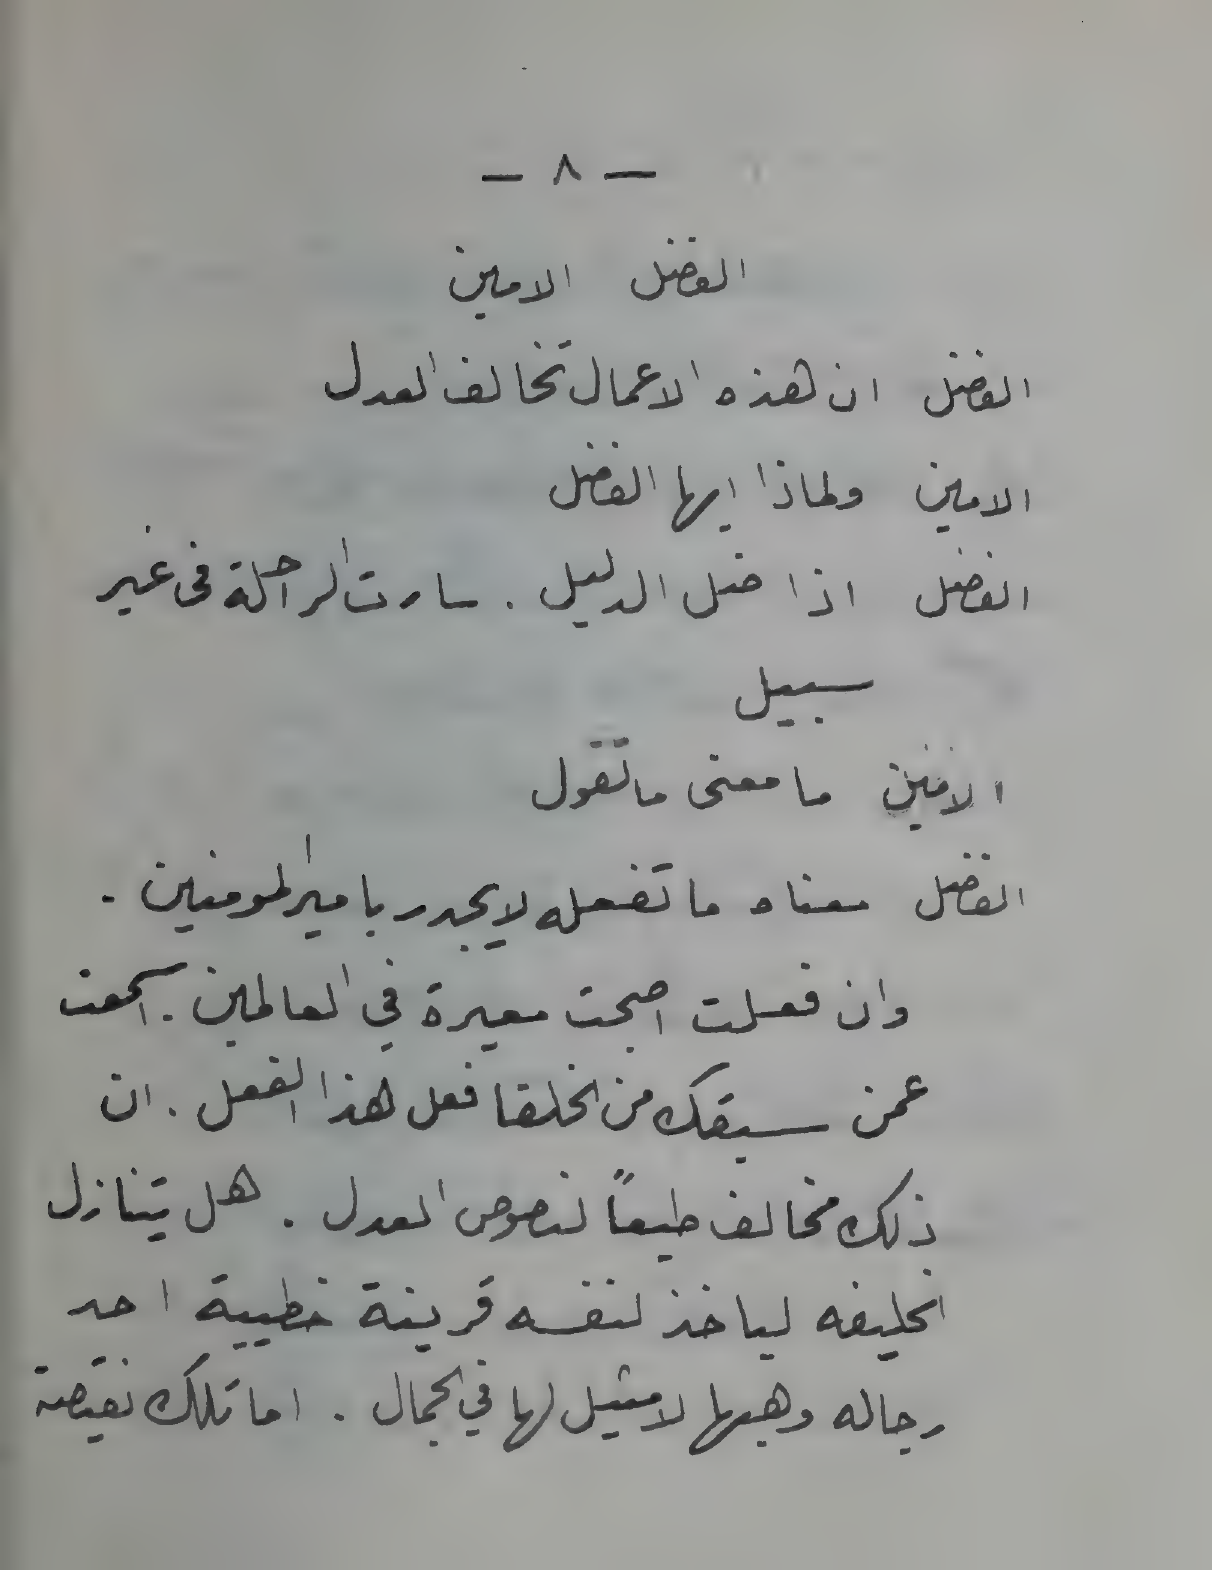 — ٨ —
الفضل الامين
الفضل ان هذه الاعمال تخالف العدل
الامين ولماذا ايها الفضل
الفضل اذا ضل الدليل . سارت الراحلة في غير
سبيل
الامين ما معنى ما تقول
الفضل معناه ما تفعله لا يجدر بامير المومنين .
وان فعلت اصبحت معيرة في العالمين . اسمعت
عمن سبقك من الخلفا فعل هذا الفعل . ان
ذلك مخالف طبعاً لنصوص العدل . هل يتنازل
الخليفه لياخذ لنفسه قرينة خطيبة احد
رجاله وهبها لا مثيل لها في الجمال . اما تلك نقيصة